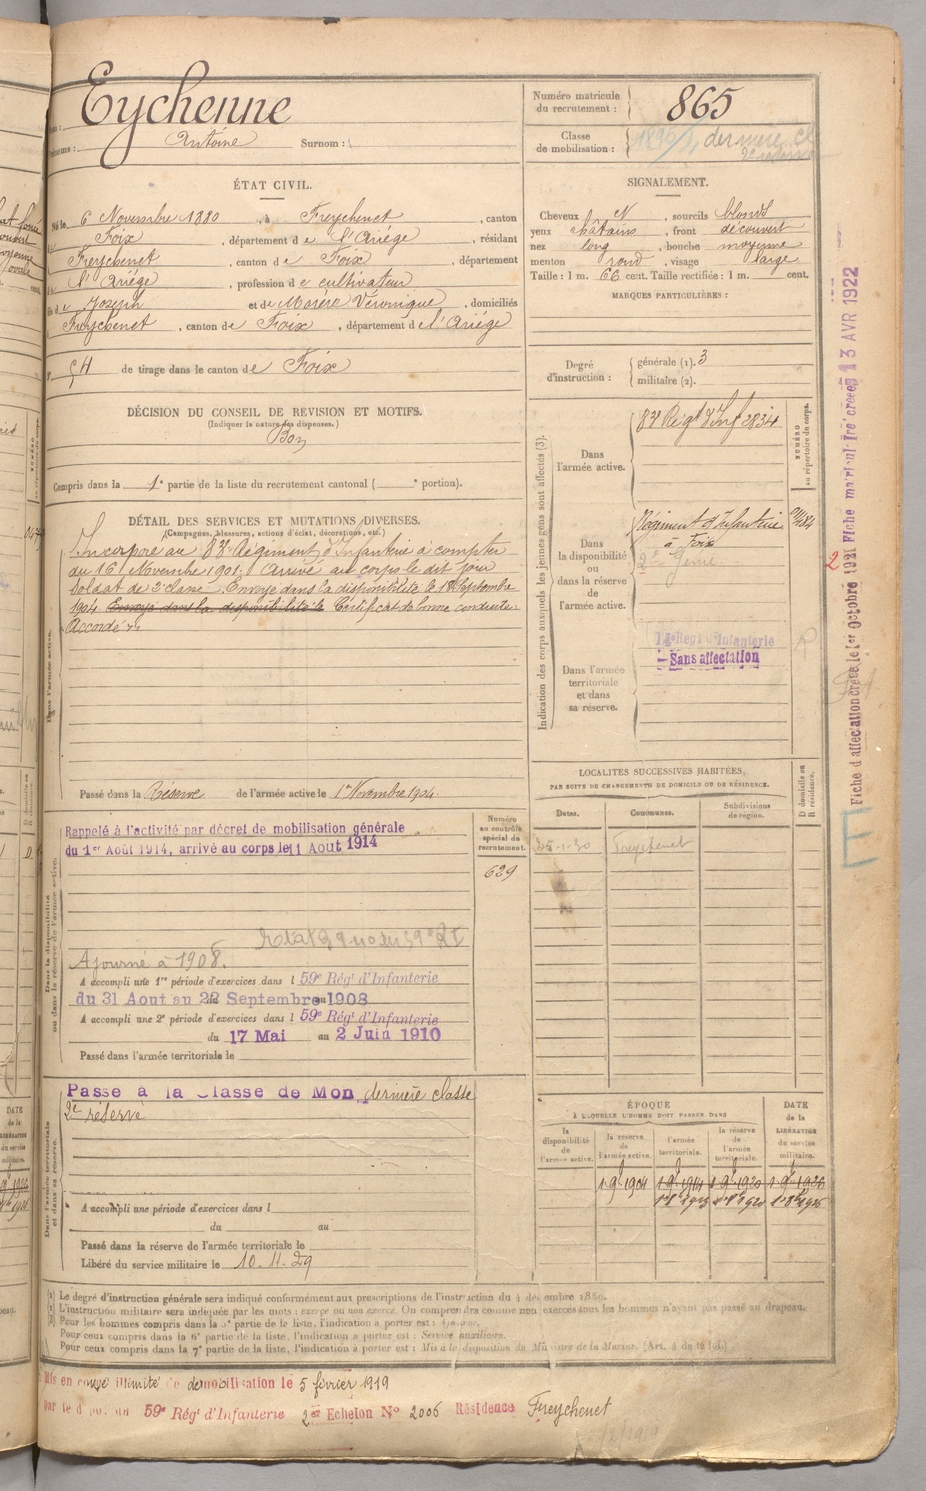 Eychenne
Numéro matricule
du recrutement : 865
Prénoms : Antoine Surnom :
Classe
de mobilisation : dernière cl
ÉTAT CIVIL.
Né le 6 Novembre 1880, à Freychenet, canton
Foix, département de l'Ariége, résidant
Freychenet, canton de Foix, département
l'Ariége, profession de cultivateur
fils de Joseph et de Morere Véronique, domiciliés
Freychenet, canton de Foix, département de l'Ariége
SIGNALEMENT.
Cheveux N, sourcils blonds
yeux châtains, front découvert
nez long, bouche moyenne
menton rond, visage large
Taille : 1 m. 66 cent. Taille rectifiée : 1 m. cent.
MARQUES PARTICULIÈRES :
54 de tirage dans le canton de Foix
Degré
d'instruction :
générale (1). 3
militaire (2).
DÉCISION DU CONSEIL DE REVISION ET MOTIFS.
(Indiquer la nature des dispenses.)
Bon
Compris dans la 1e partie de la liste du recrutement cantonal ( e portion).
DÉTAIL DES SERVICES ET MUTATIONS DIVERSES.
(Campagnes, blessures, actions d'éclat, décorations, etc.)
Incorporé au 83e Régiment d'Infanterie à compter
du 16 Novembre 1901. Arrivé au corps le dit jour
soldat de 2e classe. Envoyé dans la disponibilité le 18 Septembre
1904. Envoyé dans la disponibilité le Certificat de bonne conduite
Accordé
Dans l'armée active.
Passé dans la Réserve de l'armée active le 1er Novembre 1904.
Indication des corps auxquels les jeunes gens sont affectés (3).
NUMÉRO
au répertoire du corps.
Dans
l'armée active.
83e Régt d'Inf 2834
Dans
la disponibilité
ou
dans la réserve
de
l'armée active.
Régiment d'Infanterie
à Foix
2e Génie
Dans l'armée
territoriale
et dans
sa réserve.
Regt d'Infanterie
Sans affectation
Fiche d'affectation créée le 1er Octobre 1921 Fiche matricule créée 13 AVR 1922
LOCALITÉS SUCCESSIVES HABITÉES,
PAR SUITE DE CHANGEMENTS DE DOMICILE OU DE RÉSIDENCE.
Dates. Communes. Subdivisions
de région.
D domicile ou
R résidence.
25-1-30 Freychenet
Rappelé à l'activité par décret de mobilisation générale
du 1er Août 1914, arrivé au corps le 11 Aout 1914
Numéro
au contrôle
spécial du
recrutement.
629
Dans la disponibilité
ou dans la réserve de l'armée active.
Ajourné à 1908.
A accompli une 1re période d'exercices dans l 59e Régt d'Infanterie
du 31 Aout au 22 Septembre 1908
A accompli une 2e période d'exercices dans l 59e Régt d'Infanterie
du 17 Mai au 2 Juin 1910
Passé dans l'armée territoriale le
Passé à la Classe de Mon dernière classe
2e réserve
Dans l'armée territoriale
et dans sa réserve.
A accompli une période d'exercices dans l
du au
Passé dans la réserve de l'armée territoriale le
Libéré du service militaire le 10.11.29
ÉPOQUE
À LAQUELLE L'HOMME DOIT PASSER DANS
la
disponibilité
de
l'armée active.
la réserve
de
l'armée active.
l'armée
territoriale.
la réserve
de
l'armée
territoriale.
DATE
de la
LIBÉRATION
du service
militaire.
1 9bre 1904 1 9bre 1914 1 9bre 1920 1 9bre 1926
1er 8bre 1913 1er 8bre 1920 1er 8bre 1926
(1) Le degré d'instruction générale sera indiqué conformément aux prescriptions de l'instruction du 4 décembre 1889.
(2) L'instruction militaire sera indiquée par les mots : exercé ou non exercé. On comprendra comme non exercés tous les hommes n'ayant pas passé au drapeau.
(3) Pour les hommes compris dans la 5e partie de la liste, l'indication à porter est : Ajourné.
Pour ceux compris dans la 6e partie de la liste, l'indication à porter est : Service auxiliaire.
Pour ceux compris dans la 7e partie de la liste, l'indication à porter est : Mis à la disposition du Ministre de la Marine. (Art. 4 de la loi.)
Mis en congé illimité de démobilisation le 5 février 1919
par le dépot du 59e Régt d'Infanterie 2er Echelon No 2006 Résidence Freychenet